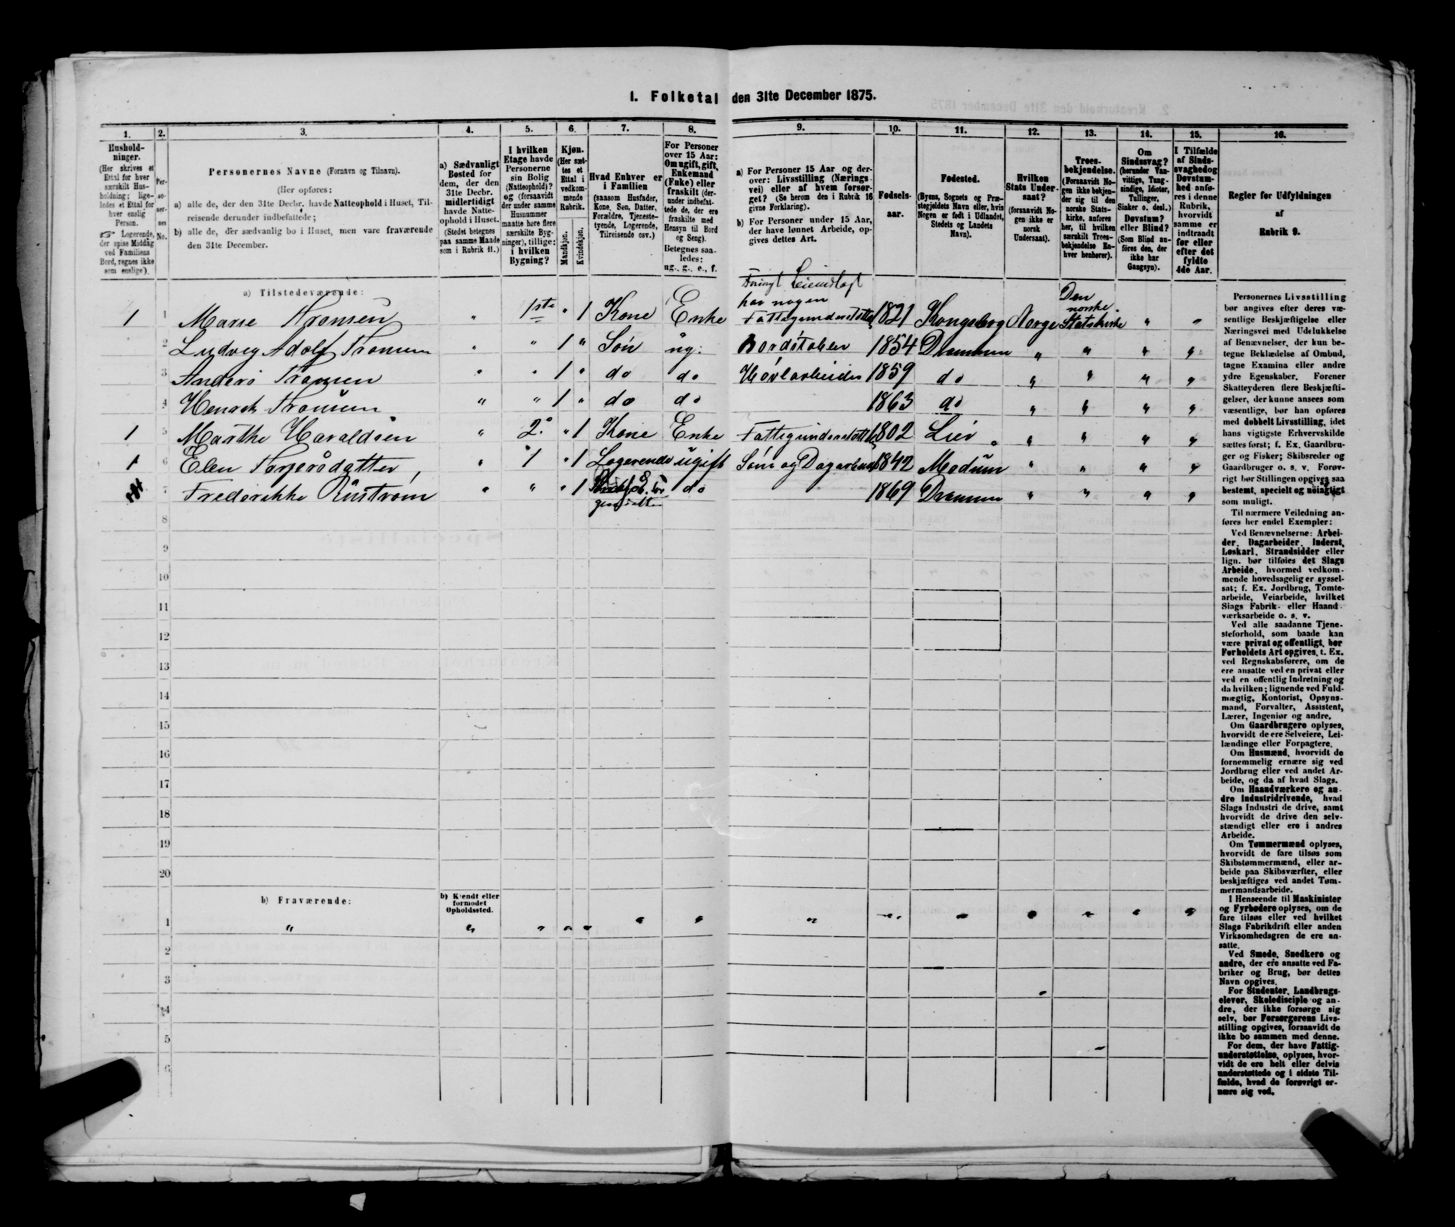 1. Folketal den 31te December 1875.
1. 2. 3. 4. 5. 6. 7. 8. 9. 10. 11. 12. 13. 14. 15. 16.
Hushold-
ninger.
(Her skrives et
Ettal for hver
særskilt Hus-
holdning; lige-
ledes et Ettal for
hver enslig
Person.
☞ Logerende,
der spise Middag
ved Familiens
Bord, regnes ikke
som enslige).
Per-
so-
ner-
nes
No.
Personernes Navne (Fornavn og Tilnavn).
(Her opføres:
a) alle de, der den 31te Decbr. havde Natteophold i Huset, Til-
reisende derunder indbefattede;
b) alle de, der sædvanlig bo i Huset, men vare fraværende
den 31te December.
a) Sædvanligt
Bosted for
dem, der den
31te Decbr.
midlertidigt
havde Natte-
ophold i Huset.
(Stedet betegnes
paa samme Maade
som i Rubrik 11.)
I hvilken
Etage havde
Personerne
sin Bolig
(Natteophold)?
og (forsaavidt
der under samme
Husnummer
maatte høre flere
særskilte Byg-
ninger), tillige:
i hvilken
Bygning?
Kjøn.
(Her sæt-
tes et
Ettal i
vedkom-
mende
Rubrik.
Mandkjøn.
Kvindekjøn.
Hvad Enhver er
i Familien
(saasom Husfader,
Kone, Søn, Datter,
Forældre, Tjeneste-
tyende, Logerende,
Tilreisende osv.)
For Personer
over 15 Aar:
Om ugift, gift,
Enkemand
(Enke) eller
fraskilt (der-
under indbefat-
tede de, der ere
fraskilte med
Hensyn til Bord
og Seng).
Betegnes saa-
ledes:
ug., g., e., f.
a) For Personer 15 Aar og der-
over: Livsstilling (Nærings-
vei) eller af hvem forsør-
get? (Se herom den i Rubrik 16
givne Forklaring).
b) For Personer under 15 Aar,
der have lønnet Arbeide, op-
gives dettes Art.
Fødsels-
aar.
Fødested.
(Byens, Sognets og Præ-
stegjeldets Navn eller, hvis
Nogen er født i Udlandet,
Stedets og Landets
Navn).
Hvilken
Stats Under-
saat?
(forsaavidt No-
gen ikke er
norsk
Undersaat).
Troes-
bekjendelse.
(Forsaavidt No-
gen ikke bekjen-
der sig til den
norske Stats-
kirke, anføres
her, til hvilken
særskilt Troes-
bekjendelse En-
hver henhører).
Om
Sindssvag?
(herunder Van-
vittige, Tung-
sindige, Idioter,
Tullinger,
Sinker o. desl.)
Døvstum?
eller Blind?
(Som Blind an-
føres den, der
ikke har
Gangsyn).
I Tilfælde
af Sinds-
svaghed og
Døvstum-
hed anfø-
res i denne
Rubrik,
hvorvidt
samme er
indtraadt
før eller
efter det
fyldte
4de Aar.
Regler for Udfyldningen
af
Rubrik 9.
a) Tilstedeværende:
1 1 Marie Aronsen " 1ste " 1 Kone Enke har nogen Fattigunderstøttelse 1821 Kongsberg Norge Den norske Statskirke " "
2 Ludvig Adolf Aronsen " " 1 " Søn ug: Bordstabler 1854 Drammen " " " "
3 Anders Aronsen " " 1 " do do Høvlarbeider 1859 do " " " "
4 Henrik Aronsen " " 1 " do do 1863 do " " " "
1 5 Marthe Haraldsen " 2. " 1 Kone Enke Fattigunderstøttet 1802 Lier " " " "
1 6 Elen Torgersdatter, " 1 " 1 Logerende ugift Søm og Dagarbeide 1842 Modum " " " "
7 Frederikke " " 1 do 1869 Drammen " " " "
8
9
10
11
12
13
14
15
16
17
18
19
20
b) Fraværende:
b) Kjendt eller
formodet
Opholdssted.
1 " " " " " " " " " " " " " "
2
3
4
5
6
Personernes Livsstilling
bør angives efter deres væ-
sentlige Beskjæftigelse eller
Næringsvei med Udelukkelse
af Benævnelser, der kun be-
tegne Beklædelse af Ombud,
tagne Examina eller andre
ydre Egenskaber. Forener
Skatteyderen flere Beskjæfti-
gelser, der kunne ansees som
væsentlige, bør han opføres
med dobbelt Livsstilling, idet
hans vigtigste Erhvervskilde
sættes først; f. Ex. Gaardbru-
ger og Fisker; Skibsreder og
Gaardbruger o. s. v. Forøv-
rigt bør Stillingen opgives saa
bestemt, specielt og nøiagtigt
som muligt.
Til nærmere Veiledning an-
føres her endel Exempler:
Ved Benævnelserne: Arbei-
der, Dagarbeider, Inderst,
Løskarl, Strandsidder eller
lign. bør tilføies det Slags
Arbeide, hvormed vedkom-
mende hovedsagelig er syssel-
sat; f. Ex. Jordbrug, Tomte-
arbeide, Veiarbeide, hvilket
Slags Fabrik- eller Haand-
værksarbeide o. s. v.
Ved alle saadanne Tjene-
steforhold, som baade kan
være privat og offentligt, bør
Forholdets Art opgives, f. Ex.
ved Regnskabsførere, om de
ere ansatte ved en privat eller
ved en offentlig Indretning og
da hvilken; lignende ved Fuld-
mægtig, Kontorist, Opsyns-
mand, Forvalter, Assistent,
Lærer, Ingeniør og andre.
Om Gaardbrugere oplyses,
hvorvidt de ere Selveiere, Lei-
lændinge eller Forpagtere.
Om Husmænd, hvorvidt de
fornemmelig ernære sig ved
Jordbrug eller ved andet Ar-
beide, og da af hvad Slags.
Om Haandværkere og an-
dre Industridrivende, hvad
Slags Industri de drive, samt
hvorvidt de drive den selv-
stændigt eller ere i andres
Arbeide.
Om Tømmermænd oplyses,
hvorvidt de fare tilsøs som
Skibstømmermænd, eller ar-
beide paa Skibsværfter, eller
beskjæftiges ved andet Tøm-
mermandsarbeide.
I Henseende til Maskinister
og Fyrbødere oplyses, om de
fare tilsøs eller ved hvilket
Slags Fabrikdrift eller anden
Virksomhedsgren de ere an-
satte.
Ved Smede, Snedkere og
andre, der ere ansatte ved Fa-
briker og Brug, bør dettes
Navn opgives.
For Studenter, Landbrugs-
elever, Skoledisciple og an-
dre, der ikke forsørge sig
selv, bør Forsørgerens Livs-
stilling opgives, forsaavidt de
ikke bo sammen med denne.
For dem, der have Fattig-
understøttelse, oplyses, hvor-
vidt de ere helt eller delvis
understøttede og i sidste Til-
fælde, hvad de forøvrigt er-
nære sig ved.